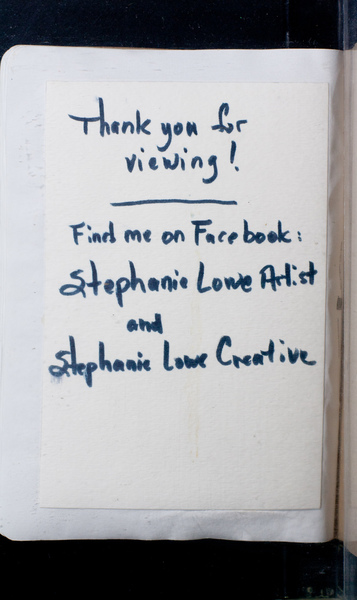 Thank you for
viewing!
Find me on Facebook:
Stephanie Lowe Artist
and
Stephanie Lowe Creative